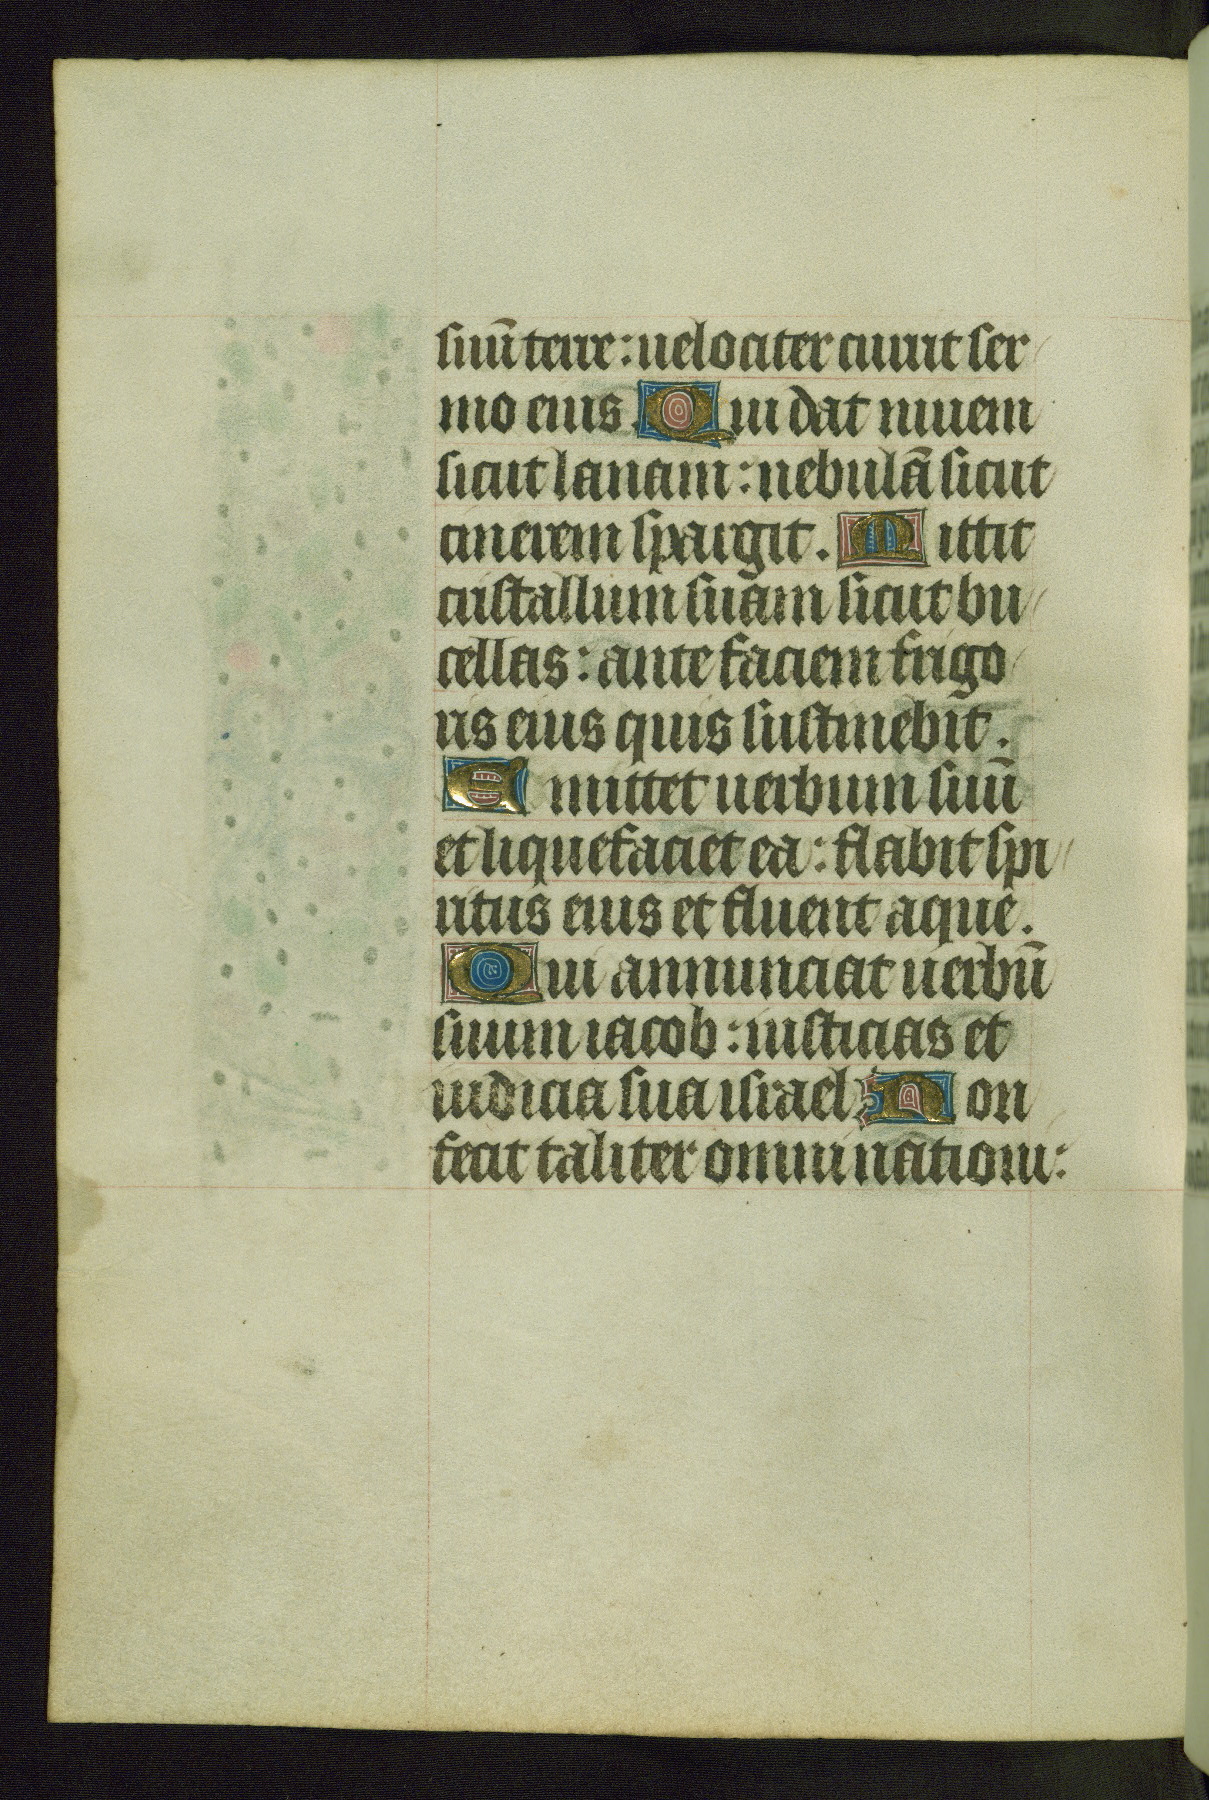 suū terre : uelociter currit ser
mo eius. Qui dat niuem
sicut lanam : nebulā sicut
cinerem spargit. Mittit
cristallum suam sicut bu
cellas : ante faciem frigo
ris eius quis sustinebit.
Emittet uerbum suū
et liquefaciet ea : flabit spi
ritus eius et fluent aque.
Qui annunciat uerbū
suum iacob : iusticias et
iudicia sua israel. Non
fecit taliter omni nationi :